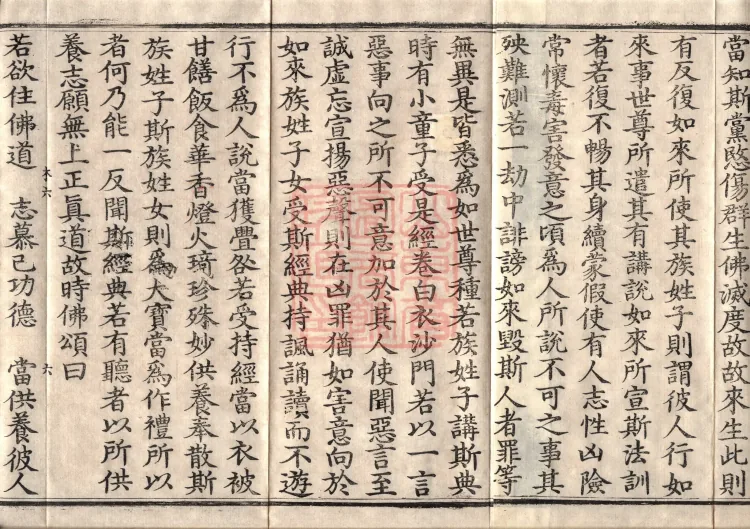 當知斯黨愍傷群生佛滅度故故來生此則
有反復如來所使其族姓子則謂彼人行如
來事世尊所遣其有講說如來所宣斯法訓
者若復不暢其身續蒙假使有人志性凶險
常懷毒害發意之頃爲人所說不可之事其
殃難測若一劫中誹謗如來毀斯人者罪等
無異是皆悉爲如世尊種若族姓子講斯典
時有小童子受是經卷白衣沙門若以一言
惡事向之所不可意加於其人使聞惡言至
誠虛忘宣揚惡聲則在凶罪猶如害意向於
如來族姓子女受斯經典持諷誦讀而不遊
行不爲人說當獲疊咎若受持經當以衣被
甘饍飯食華香燈火琦珍殊妙供養奉散斯
族姓子斯族姓女則爲大寶當爲作禮所以
者何乃能一反聞斯經典若有聽者以所供
養志願無上正眞道故時佛頌曰
若欲住佛道　志慕己功德　當供養彼人